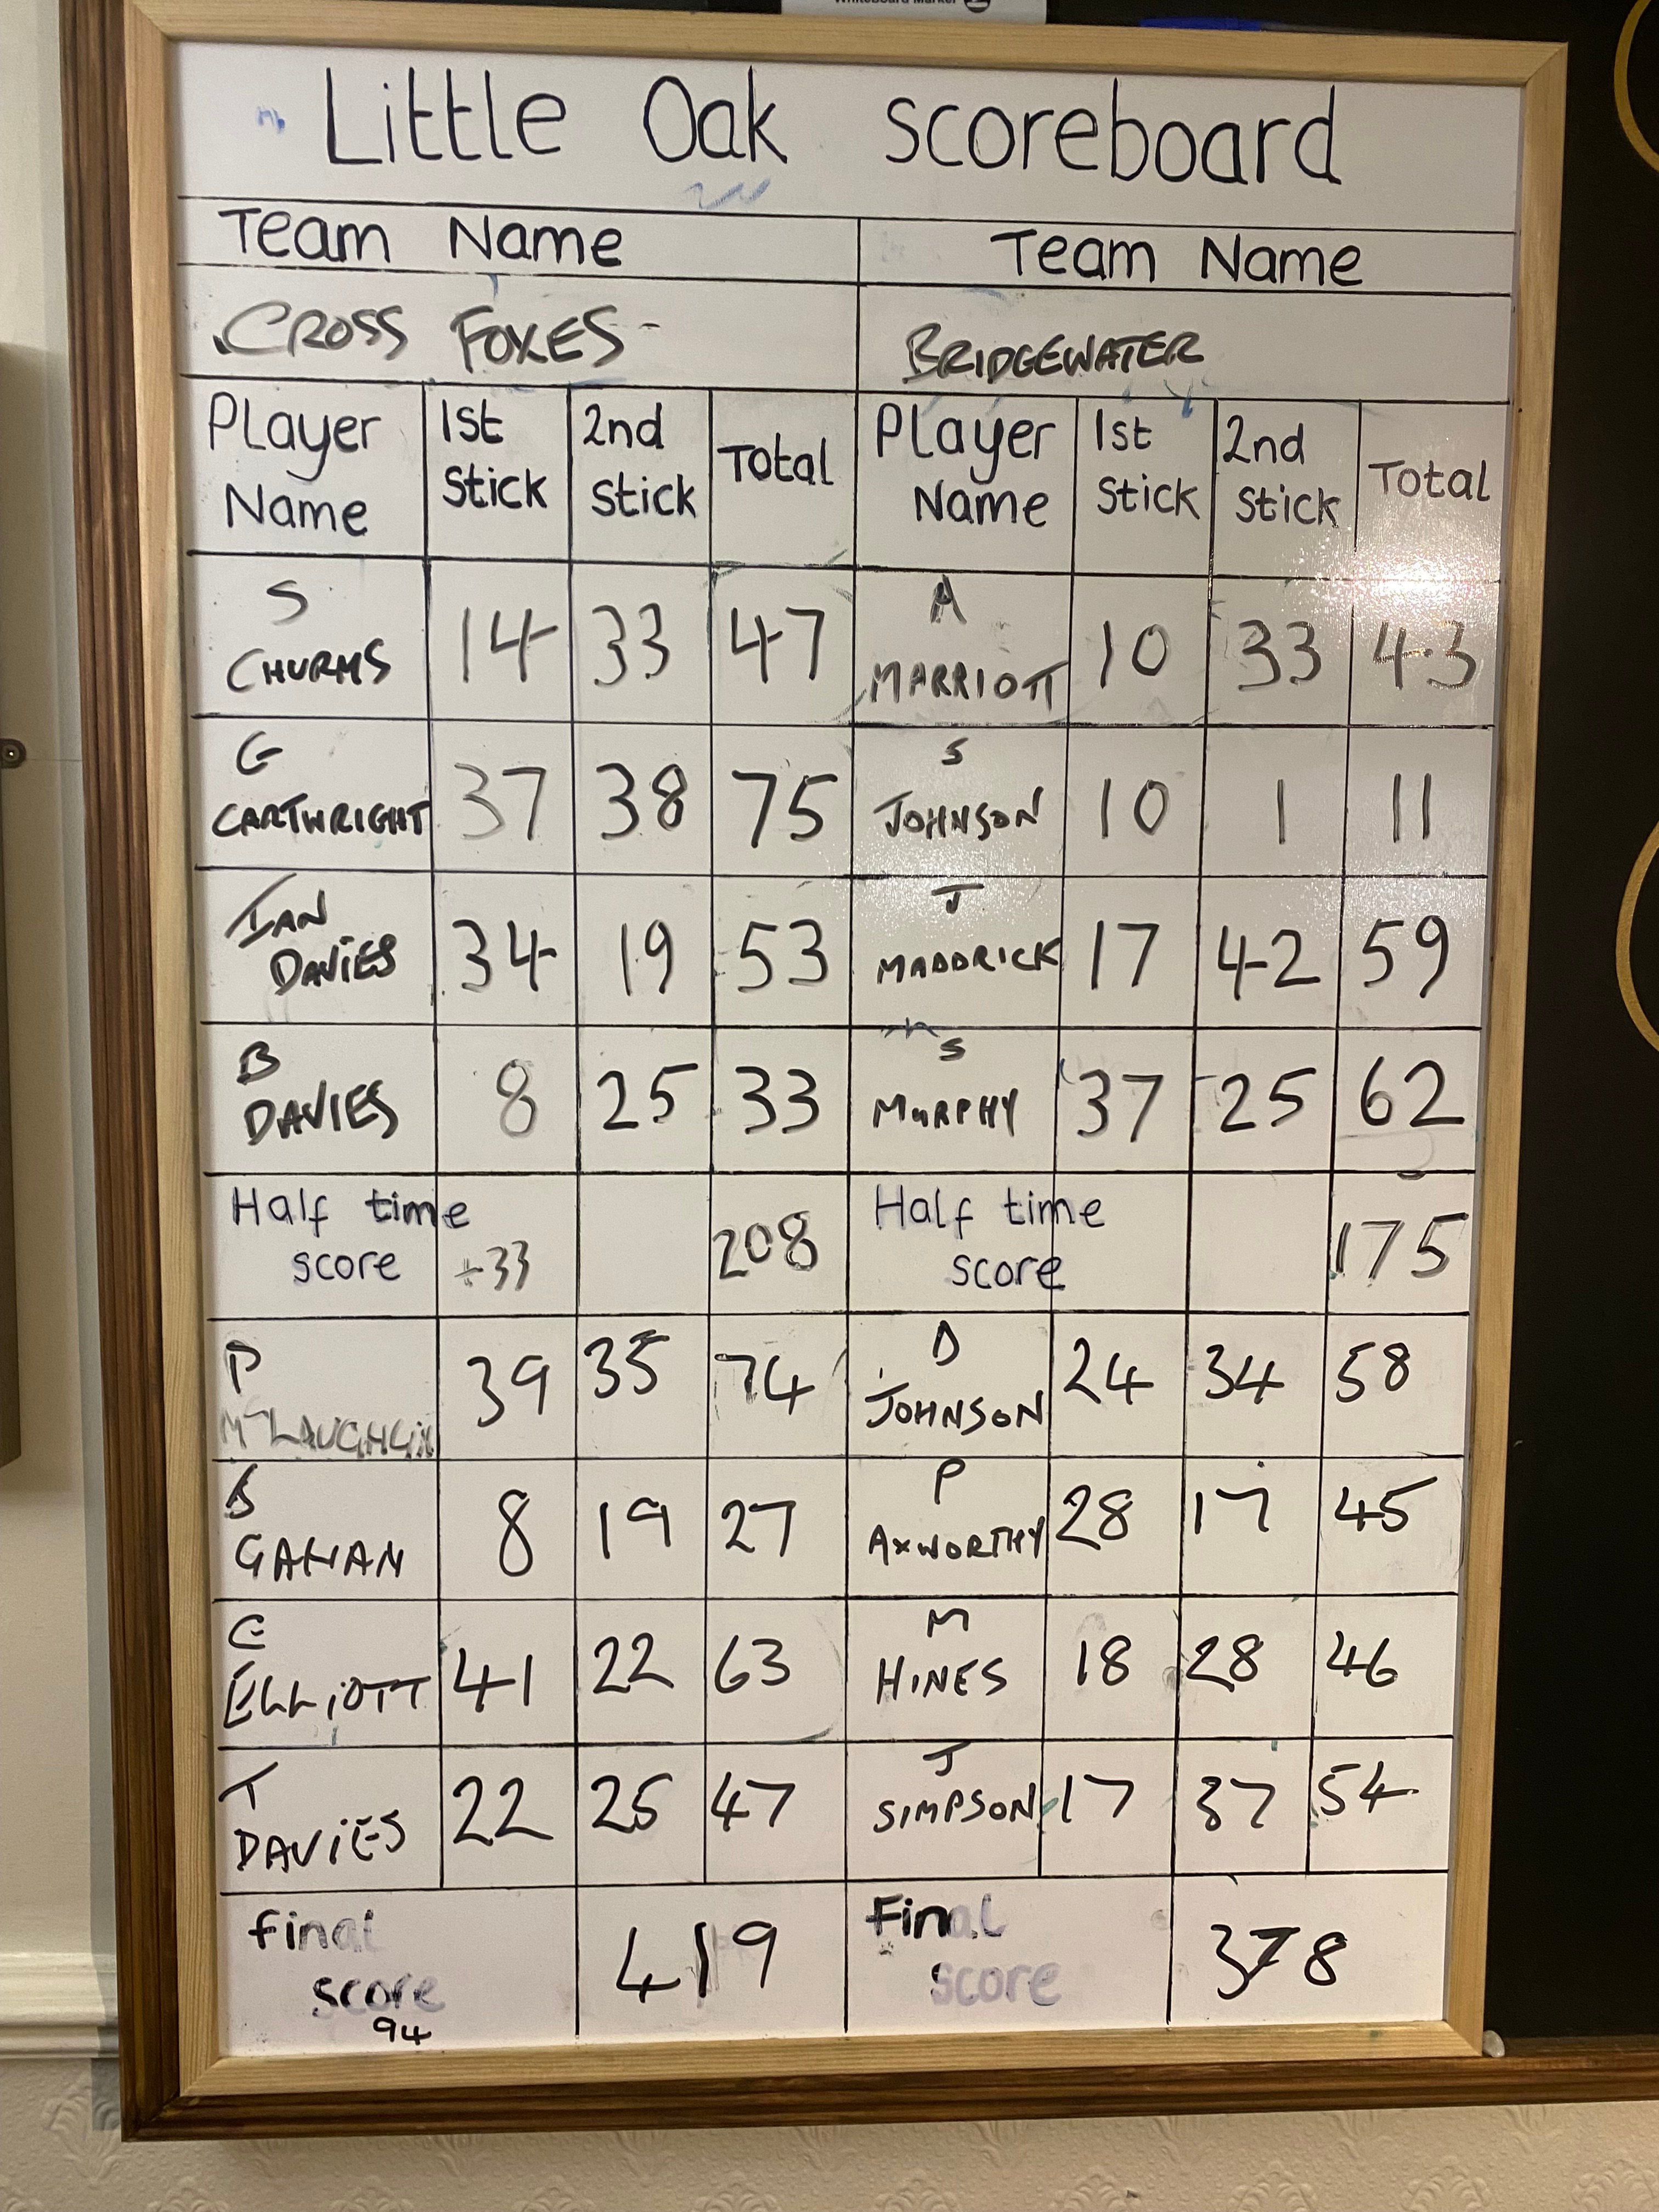 Whiteboard Marker
Little Oak scoreboard
Team Name Team Name
CROSS FOXES BRIDGEWATER
Player Name 1st Stick 2nd Stick Total Player Name 1st Stick 2nd Stick Total
S CHURMS 14 33 47 A MARRIOTT 10 33 43
G CARTWRIGHT 37 38 75 S JOHNSON 10 1 11
IAN DAVIES 34 19 53 J MADDRICK 17 42 59
B DAVIES 8 25 33 S MURPHY 37 25 62
Half time score +33 208 Half time score 175
P McLAUGHLIN 39 35 74 D JOHNSON 24 34 58
GAHAN 8 19 27 P AXWORTHY 28 17 45
ELLIOTT 41 22 63 M HINES 18 28 46
T DAVIES 22 25 47 J SIMPSON 17 37 54
final score 94 419 Final score 378